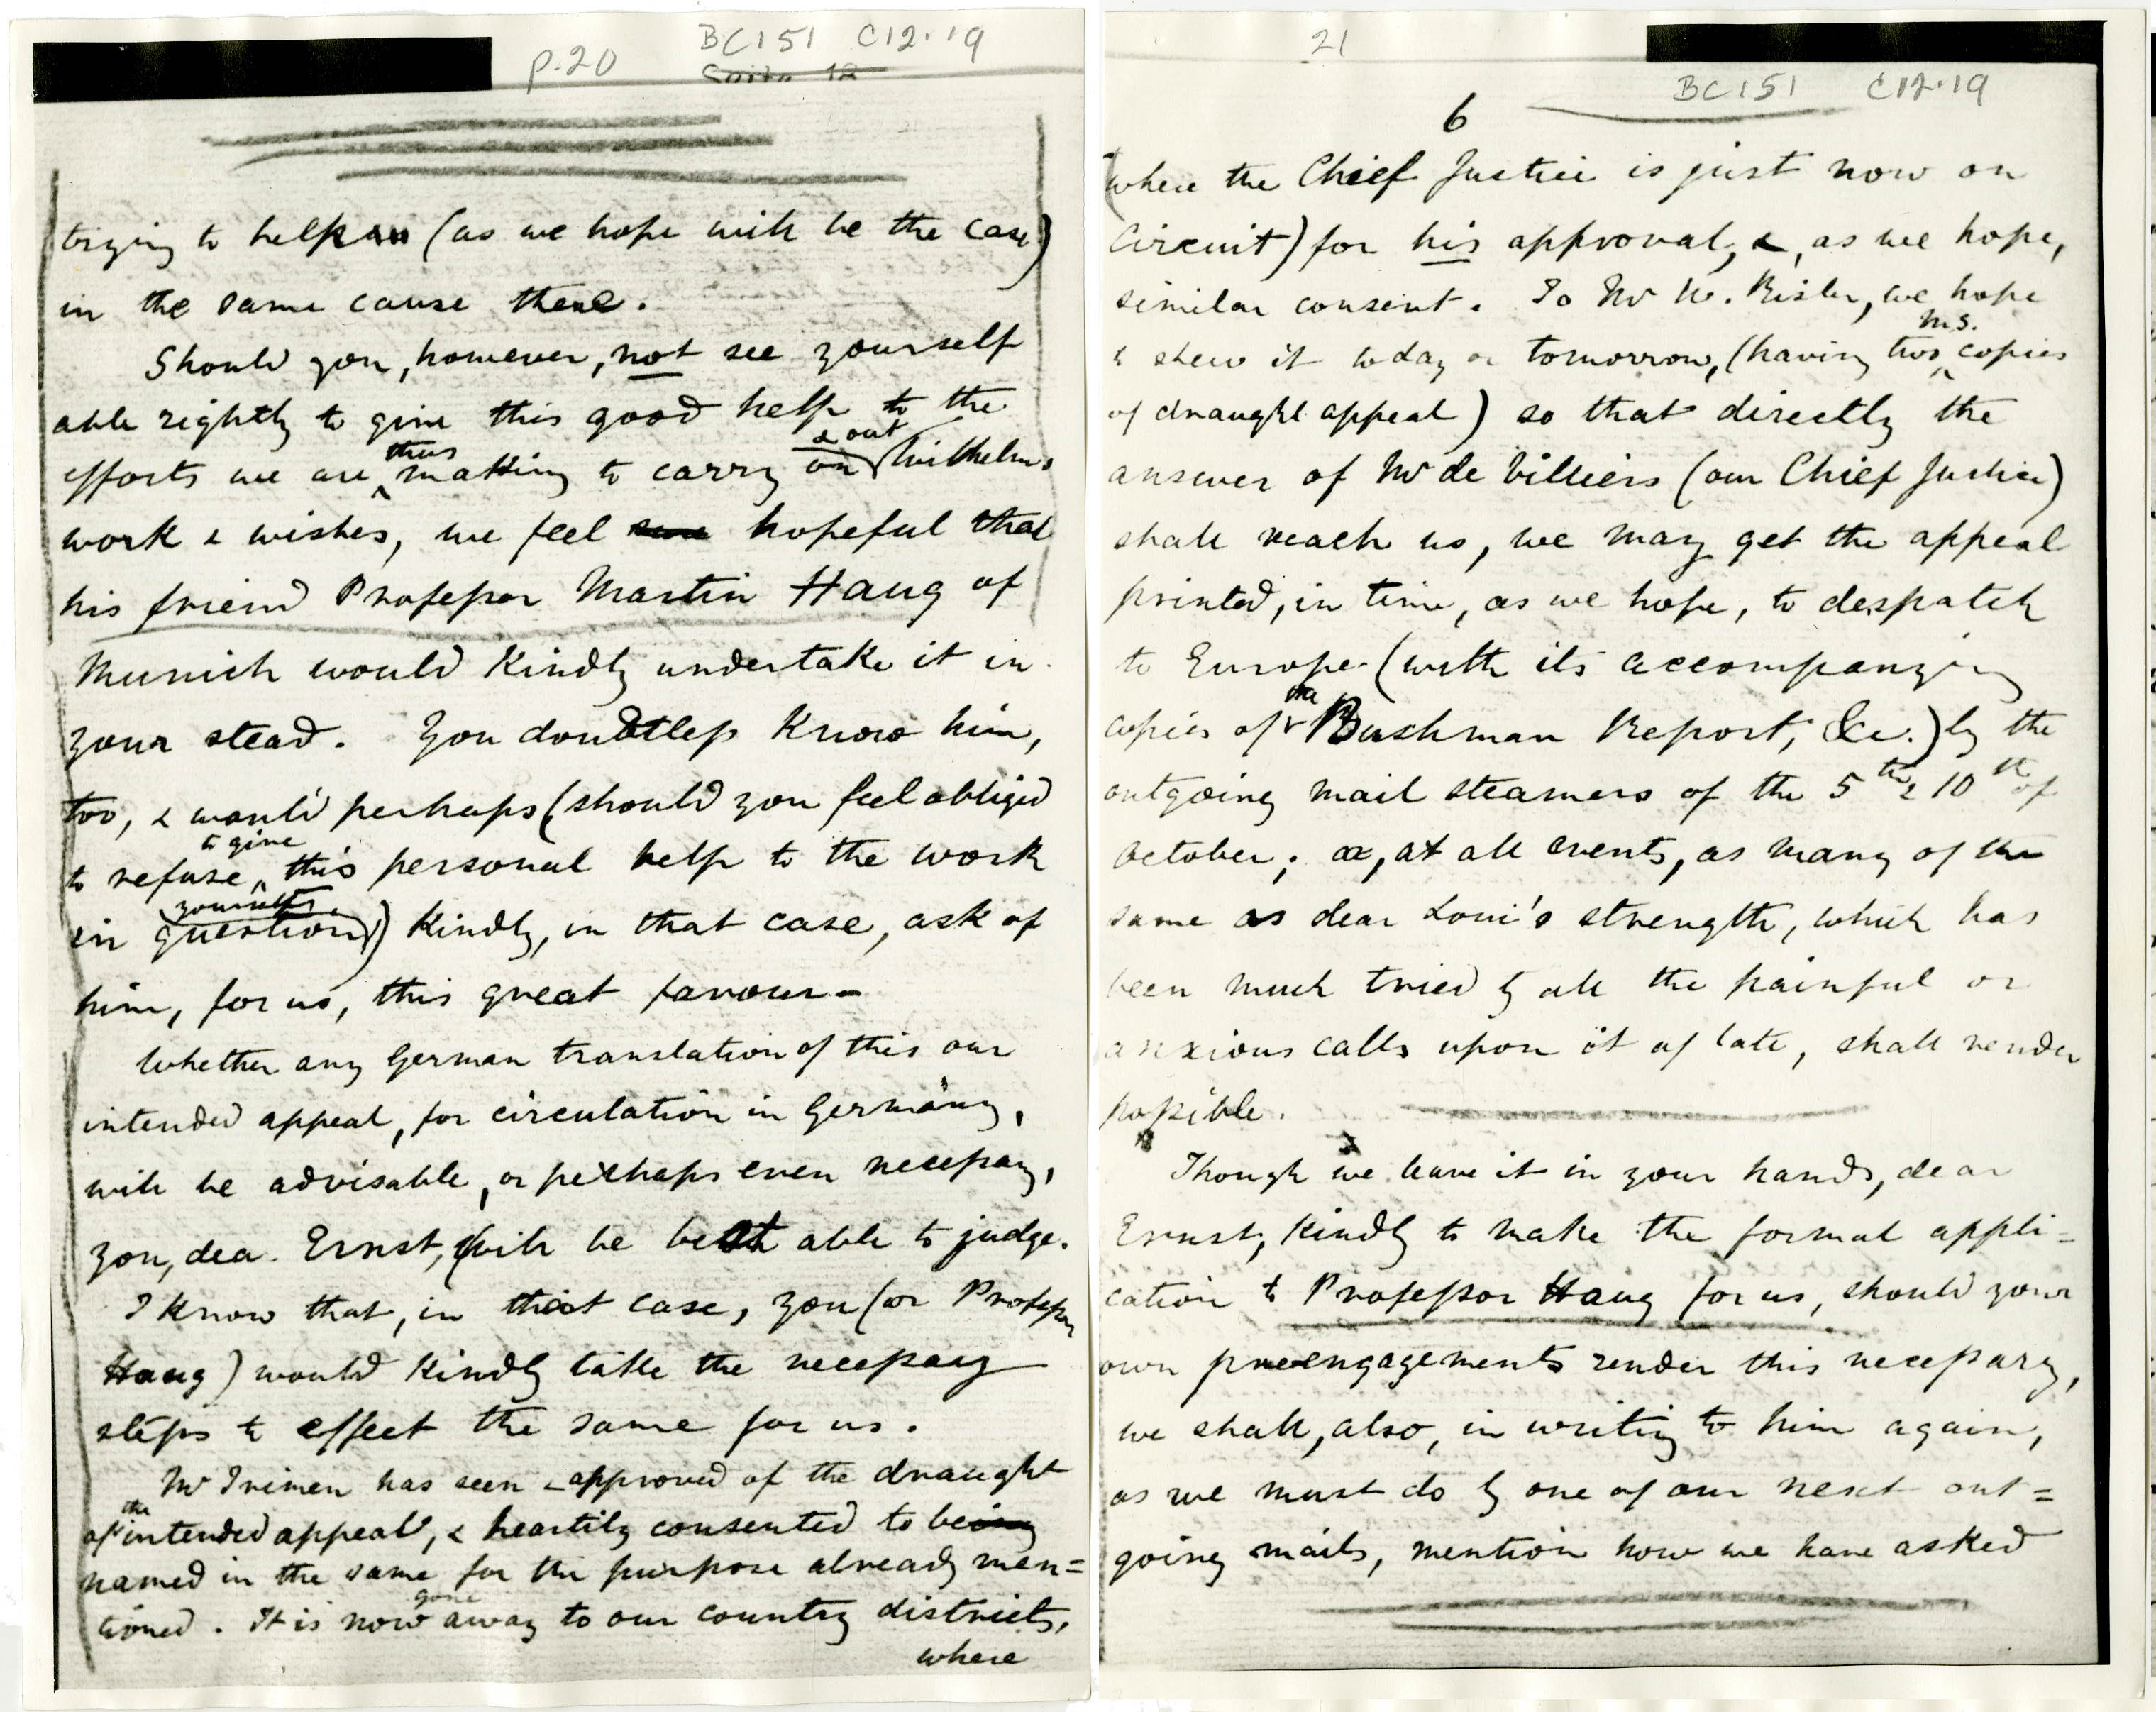 p.20 BC151 C12.19
trying to help (as we hope will be the case)
in the same cause there.
Should you, however, not see yourself
able rightly to give this good help to the
efforts we are thus making to carry on & out Wilhelm's
work & wishes, we feel hopeful that
his friend Professor Martin Haug of
Munich would kindly undertake it in
your stead. You doubtless know him,
too, & would perhaps (should you feel obliged
to refuse to give this personal help to the work
in question yourself) kindly, in that case, ask of
him, for us, this great favour.
Whether any German translation of this our
intended appeal, for circulation in Germany,
will be advisable, or perhaps even necessary,
you, dear Ernst, will be best able to judge.
I know that, in that case, you (or Professor
Haug) would kindly take the necessary
steps to effect the same for us.
Mr Trimen has seen & approved of the draught
of the intended appeal, & heartily consented to being
named in the same for the purpose already men=
tioned. It is now gone away to our country districts,
where
21
BC151 C12.19
6
(where the Chief Justice is just now on
Circuit) for his approval, &, as we hope,
similar consent. To Mr W. we hope
to shew it today or tomorrow, (having two M.S. copies
of draught appeal) so that directly the
answer of Mr de Villiers (our Chief Justice)
shall reach us, we may get the appeal
printed, in time, as we hope, to despatch
to Europe (with its accompanying
copies of the Bushman Report, &c.) by the
outgoing mail steamers of the 5th & 10th of
October; or, at all events, as many of the
same as dear Loui's strength, which has
been much tried by all the painful or
anxious calls upon it of late, shall render
possible.
Though we leave it in your hands, dear
Ernst, kindly to make the formal appli=
cation to Professor Haug for us, should your
own preengagements render this necessary,
we shall, also, in writing to him again,
as we must do by one of our next out=
going mails, mention how we have asked